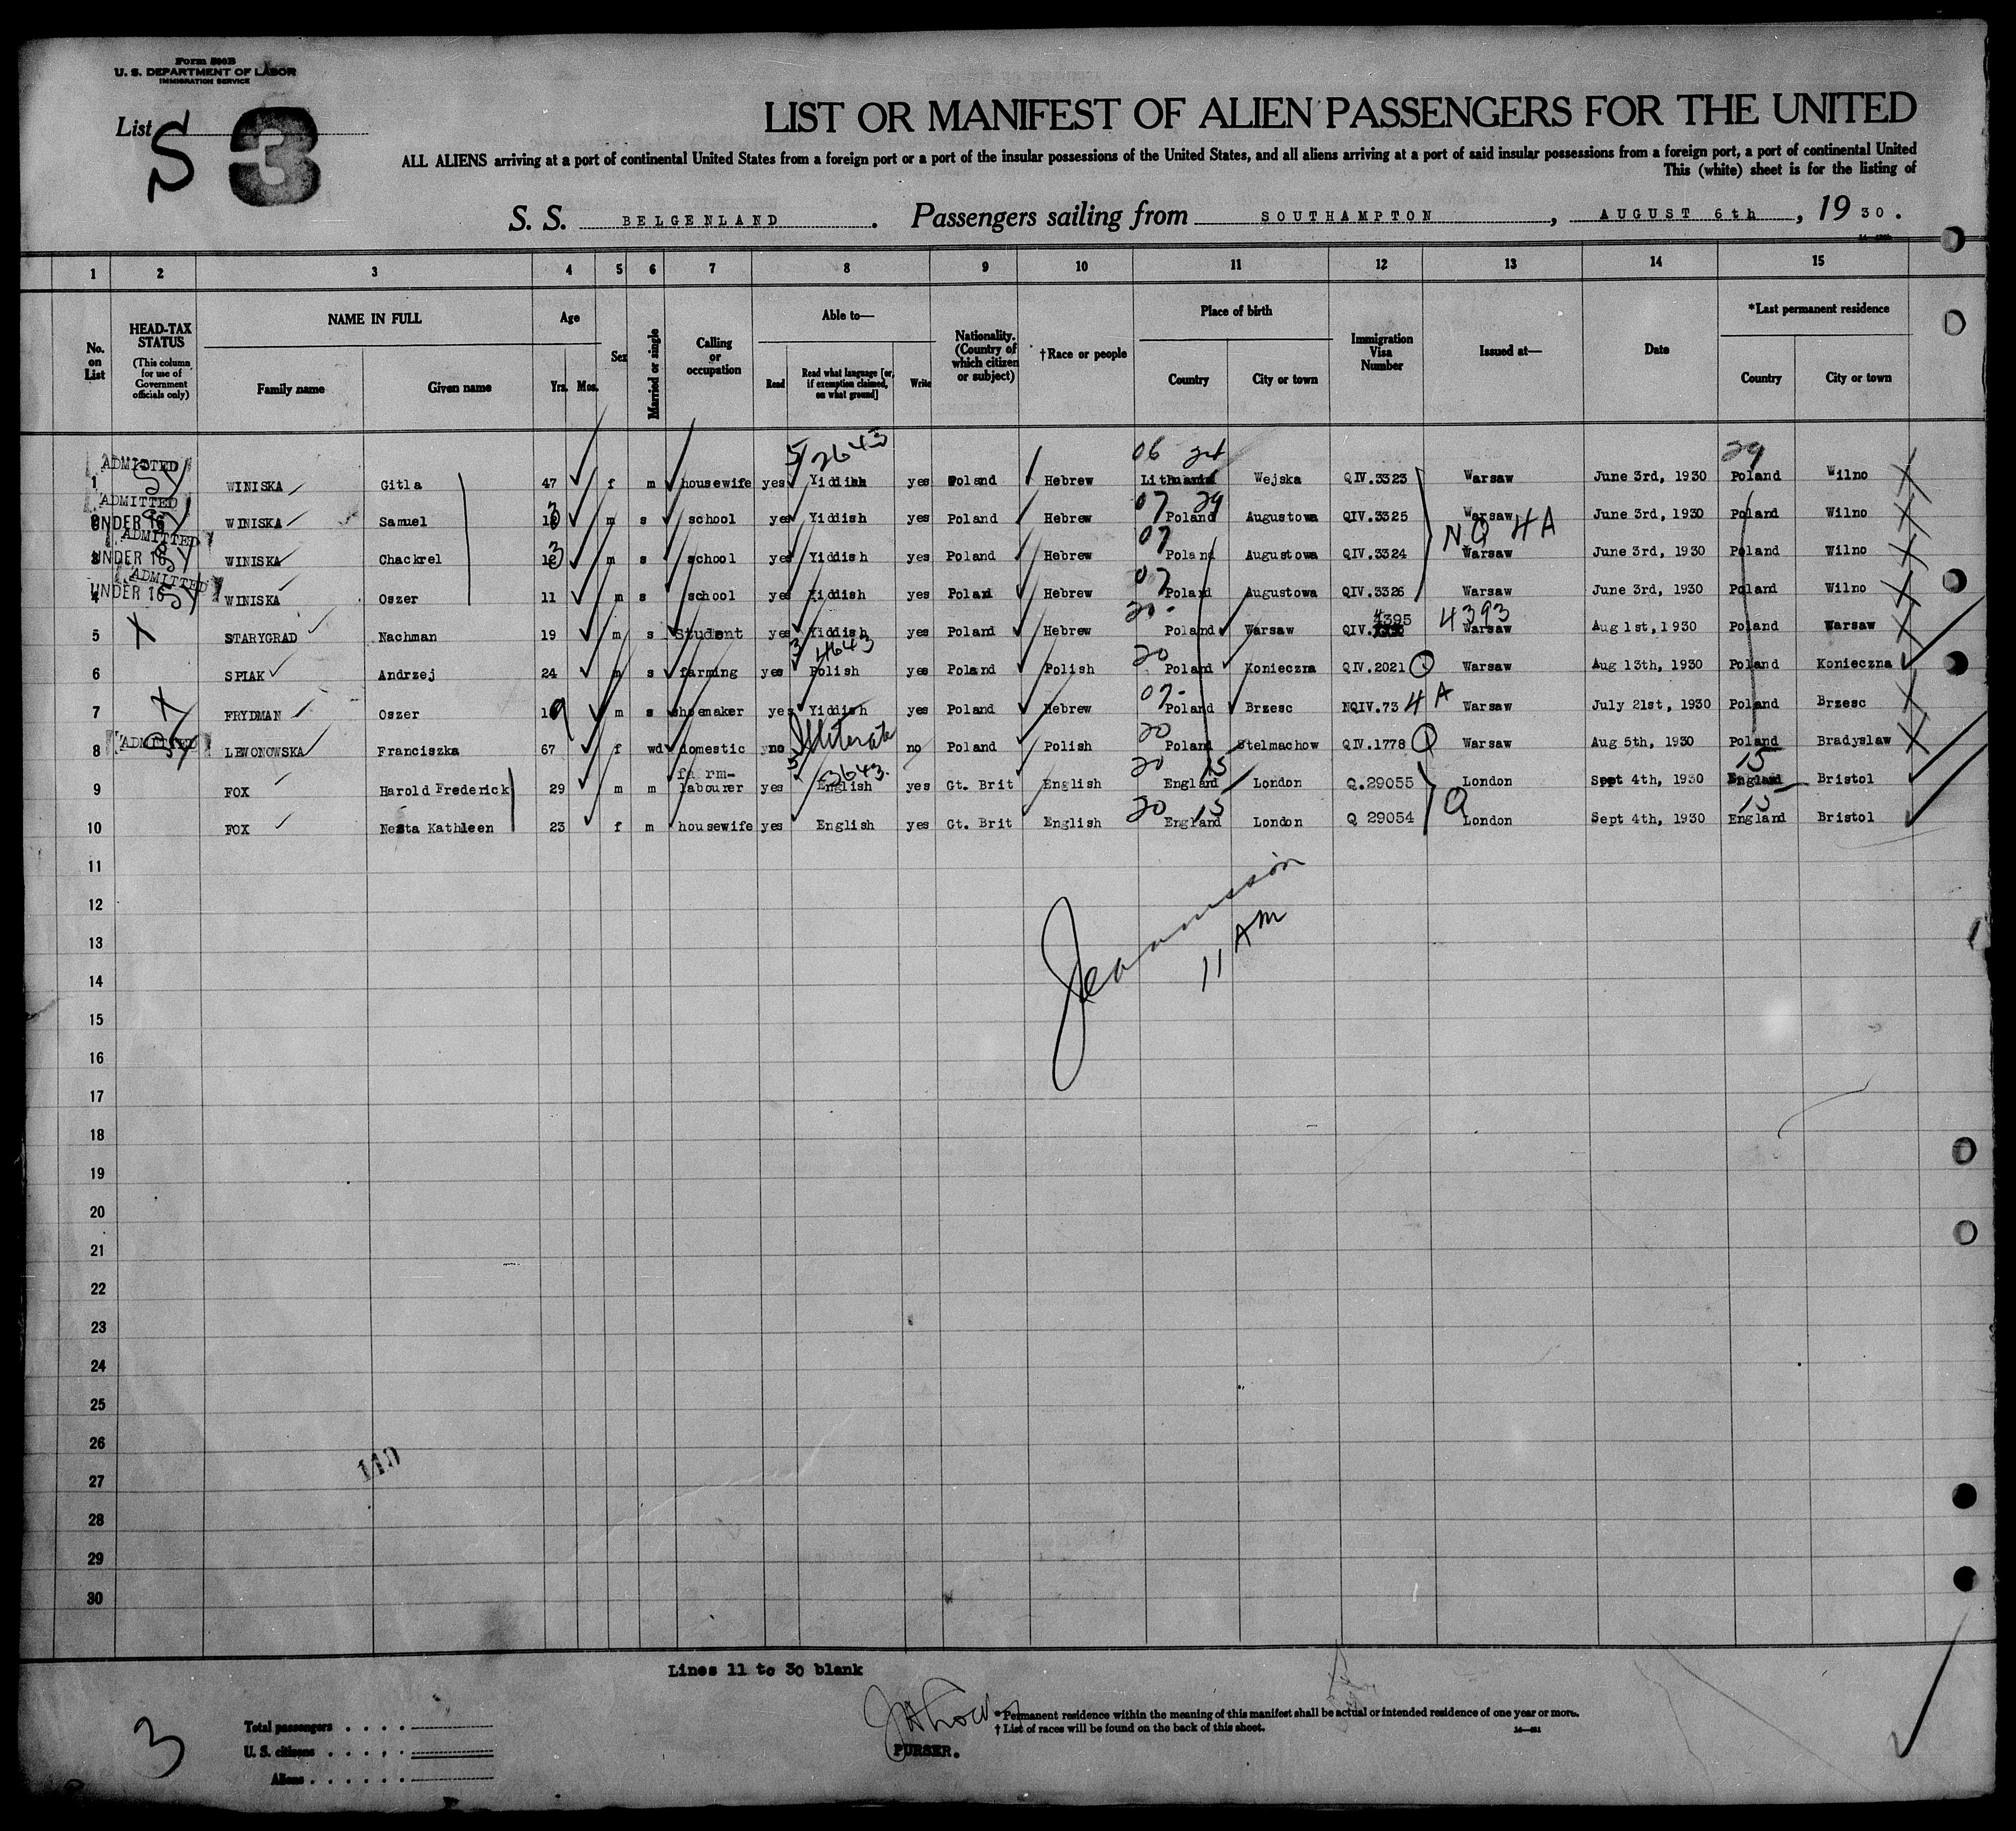 Form 500B
U. S. DEPARTMENT OF LABOR
IMMIGRATION SERVICE
List S 3
LIST OR MANIFEST OF ALIEN PASSENGERS FOR THE UNITED
ALL ALIENS arriving at a port of continental United States from a foreign port or a port of the insular possessions of the United States, and all aliens arriving at a port of said insular possessions from a foreign port, a port of continental United
This (white) sheet is for the listing of
S. S. BELGENLAND. Passengers sailing from SOUTHAMPTON, AUGUST 6th, 1930.
1 2 3 4 5 6 7 8 9 10 11 12 13 14 15
No. on List
HEAD-TAX STATUS
(This column for use of Government officials only)
NAME IN FULL
Family name
Given name
Age
Yrs. Mos.
Sex
Married or single
Calling or occupation
Able to—
Read
Read what language [or, if exemption claimed, on what ground]
Write
Nationality. (Country of which citizen or subject)
†Race or people
Place of birth
Country
City or town
Immigration Visa Number
Issued at—
Date
*Last permanent residence
Country
City or town
5/2643 06 29
ADMITTED
1 WINISKA Gitla 47 f m housewife yes Yiddish yes Poland Hebrew Lithuania Wejska QIV.3323 Warsaw June 3rd, 1930 Poland Wilno
ADMITTED
07 29
UNDER 16 WINISKA Samuel m s school yes Yiddish yes Poland Hebrew Poland Augustowa QIV.3325 Warsaw June 3rd, 1930 Poland Wilno
ADMITTED
07 NQ 4A
UNDER 16 WINISKA Chackrel m s school yes Yiddish yes Poland Hebrew Poland Augustowa QIV.3324 Warsaw June 3rd, 1930 Poland Wilno
ADMITTED
07
4 UNDER 16 WINISKA Oszer 11 m s school yes Yiddish yes Poland Hebrew Poland Augustowa QIV.3326 Warsaw June 3rd, 1930 Poland Wilno
20 4395 4393
5 X STARYGRAD Nachman 19 m s Student yes Yiddish yes Poland Hebrew Poland Warsaw QIV. Warsaw Aug 1st,1930 Poland Warsaw
3/4643 20
6 SPIAK Andrzej 24 m s farming yes Polish yes Poland Polish Poland Konieczna QIV.2021 Q Warsaw Aug 13th, 1930 Poland Konieczna
07
7 X FRYDMAN Oszer 19 m s shoemaker yes Yiddish yes Poland Hebrew Poland Brzesc NQIV.73 4A Warsaw July 21st, 1930 Poland Brzesc
20
8 ADMITTED LEWONOWSKA Franciszka 67 f wd domestic no Illiterate no Poland Polish Poland Stelmachow QIV.1778 Q Warsaw Aug 5th, 1930 Poland Bradyslaw
farm- 3643 20 15 15
9 FOX Harold Frederick 29 m m labourer yes English yes Gt. Brit English England London Q.29055 London Sept 4th, 1930 England Bristol
20 15 Q 15
10 FOX Nesta Kathleen 23 f m housewife yes English yes Gt. Brit English England London Q 29054 London Sept 4th, 1930 England Bristol
11
12
13
11 AM
14
15
16
17
18
19
20
21
22
23
24
25
26
110
27
28
29
30
Lines 11 to 30 blank
*Permanent residence within the meaning of this manifest shall be actual or intended residence of one year or more.
†List of races will be found on the back of this sheet.
PURSER.
3
Total passengers . . . .
U. S. citizens . . . . .
Aliens . . . . . .